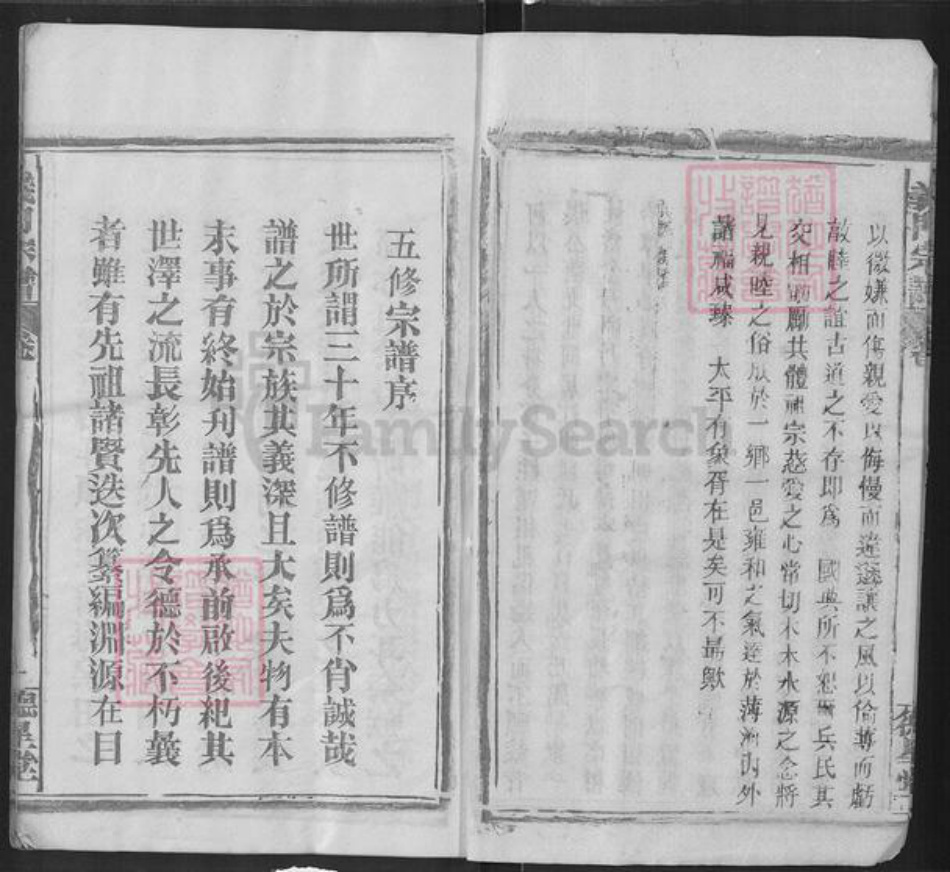 以微嫌而傷親愛以侮慢而違遜讓之風以偷薄而虧
敵睦之誼古道之不存即為 國典所不恕爾兵民其
交相勸勵共體祖宗慈愛之心常切木本水源之念將
見親睦之俗成於一鄉一邑雍和之氣達於薄海內外
諸福咸臻 太平有象胥在是矣可不勗歟
五修宗譜序
世所謂三十年不修譜則為不肖誠哉
譜之於宗族其義深且大矣夫物有本
末事有終始刋譜則為承前啟後紀其
世澤之流長彰先人之令德於不朽曩
者雖有先祖諸賢迭次纂編淵源在目
FamilySearch